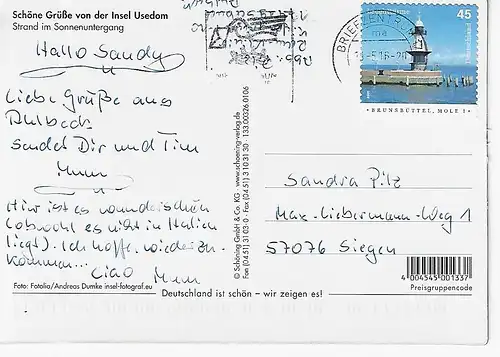 Schöne Grüße von der Insel Usedom
Strand im Sonnenuntergang
Hallo Sandy
Liebe Grüße aus
Ahlbeck
sendet Dir und Tim
Mum
Hier ist es wunderschön
(obwohl es nicht in Italien
liegt). Ich hoffe, wieder zu-
kommen...
Ciao Mum
Foto: Fotolia/Andreas Dumke insel-fotograf.eu
© Schöning GmbH & Co. KG · www.schoening-verlag.de
Fax (04 51) 31 03-0 · Fax (04 51) 3 10 31 30 · 133.00326.0106
Deutschland ist schön – wir zeigen es!
BRIEFZENTRUM
45
Deutschland
BRUNSBÜTTEL, MOLE 1
Sandra Pilz
Max-Liebermann-Weg 1
57076 Siegen
4 004545 001337
Preisgruppencode